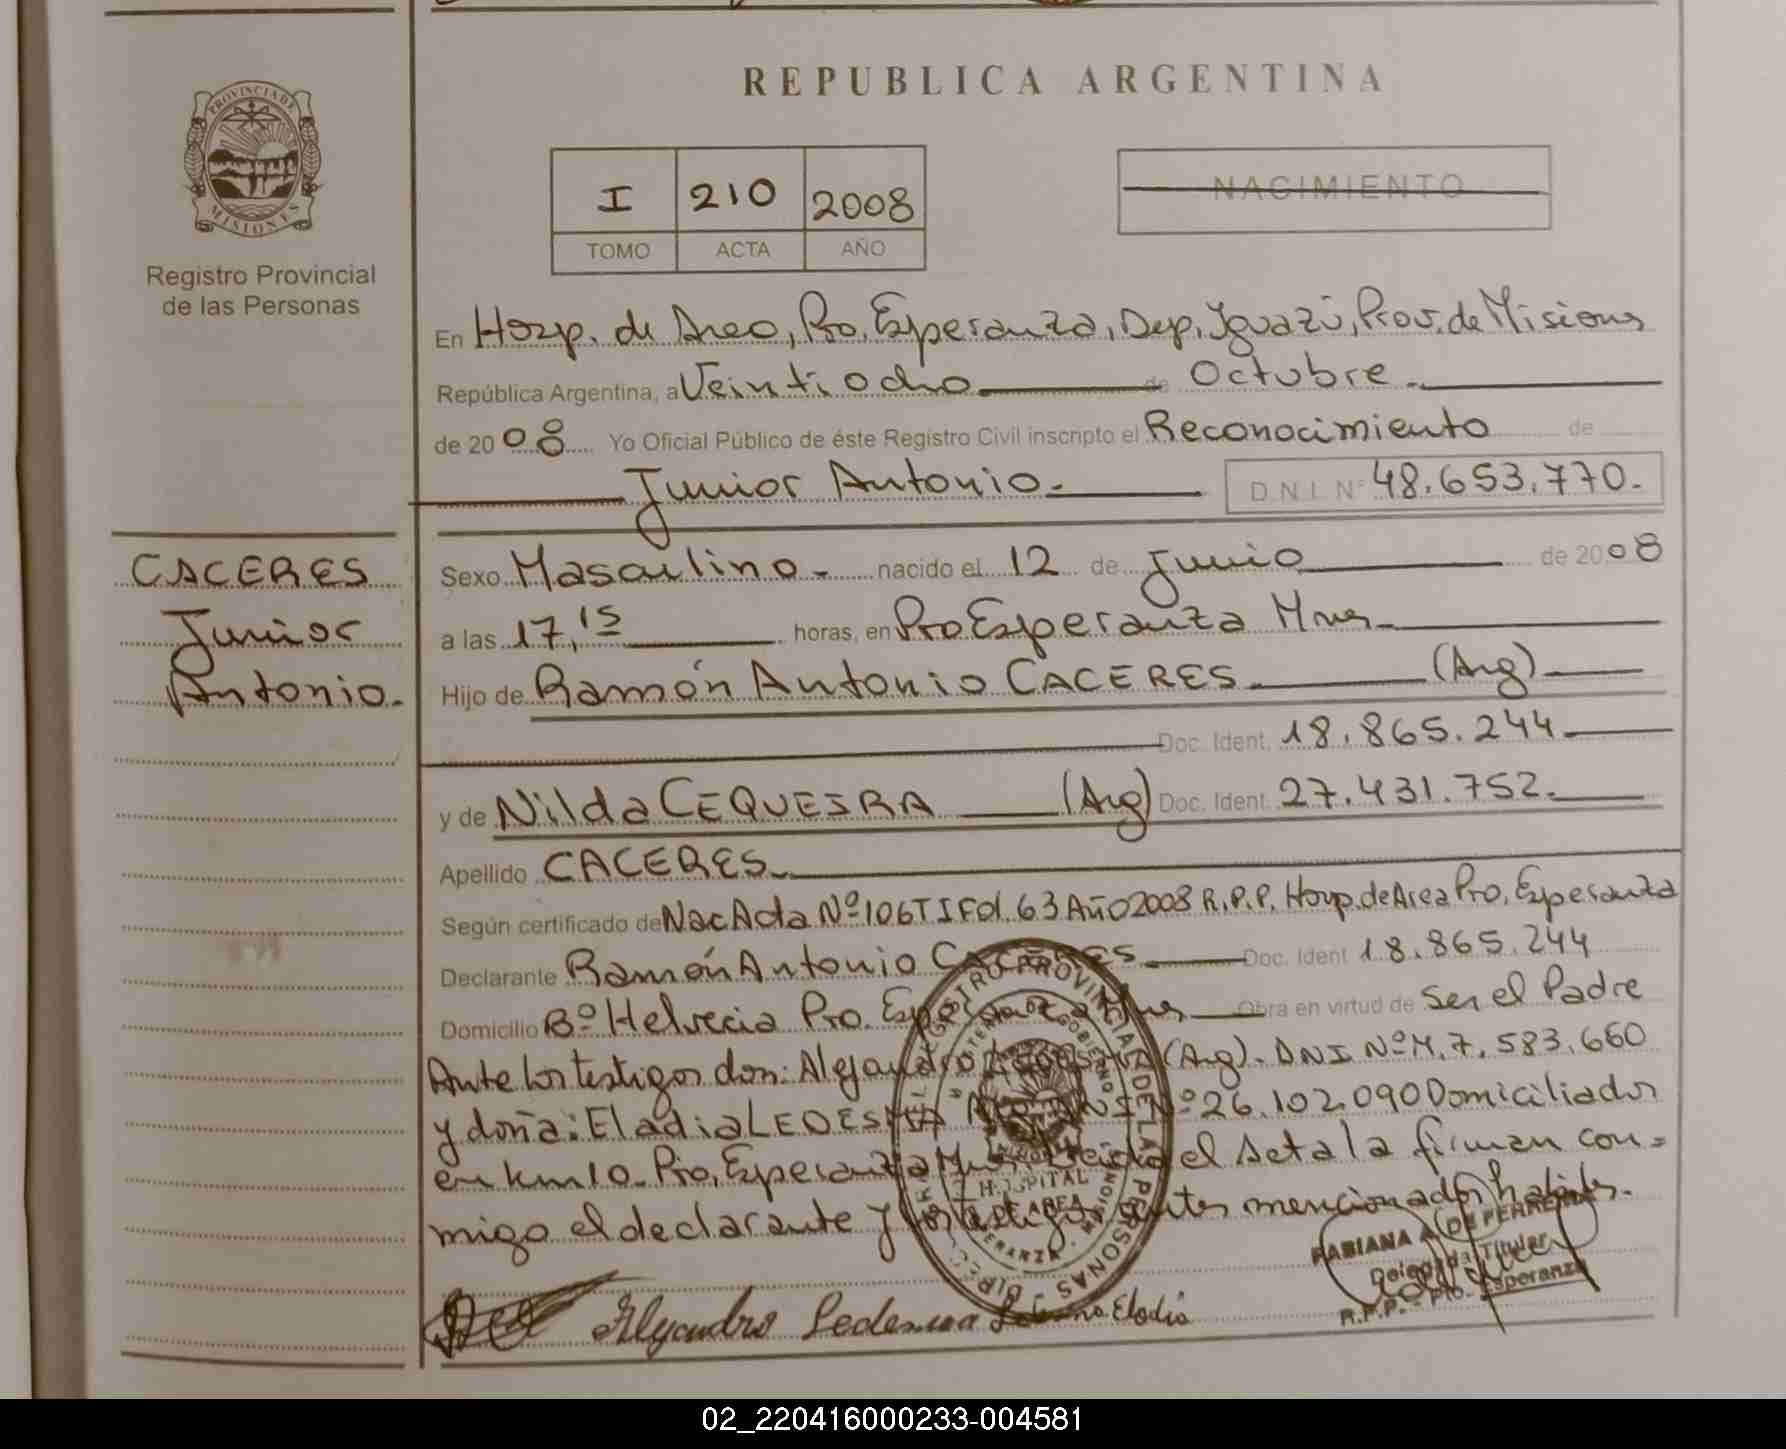 REPUBLICA ARGENTINA
PROVINCIA DE
MISIONES
Registro Provincial
de las Personas
I 210 2008
TOMO ACTA AÑO
NACIMIENTO
En Hosp. de Area, Pto. Esperanza, Dep. Iguazú, Prov. de Misiones
República Argentina, a Veintiocho de Octubre.
de 2008 Yo Oficial Público de éste Registro Civil inscripto el Reconocimiento de
Junior Antonio. D.N.I. Nº 48.653.770.
CACERES
Junior
Antonio.
Sexo Masculino. nacido el 12 de Junio de 2008
a las 17,15 horas, en Pto Esperanza Mnes.
Hijo de Ramón Antonio CACERES. (Arg)
Doc. Ident. 18.865.244.
y de Nilda CEQUEIRA (Arg) Doc. Ident. 27.431.752.
Apellido CACERES.
Según certificado de Nac Acta Nº 106 T I Fol. 63 Año 2008 R.P.P. Hosp. de Area Pto. Esperanza
Declarante Ramón Antonio CACERES Doc. Ident 18.865.244
Domicilio Bº Helvecia Pto. Esperanza Mnes Obra en virtud de Ser el Padre
Ante los testigos don: Alejandro (Arg). DNI Nº M. 7.583.660
y doña: Eladia LEDESMA Nº 26.102.090 Domiciliados
en km 10. Pto. Esperanza Mnes. Leida el Acta la firman con=
migo el declarante y los testigos antes mencionados habiles.
Alejandro Ledesma Eladia
FABIANA A. DE FERREIRA
Delegada Titular
R.P.P. - Pto. Esperanza
02_220416000233-004581